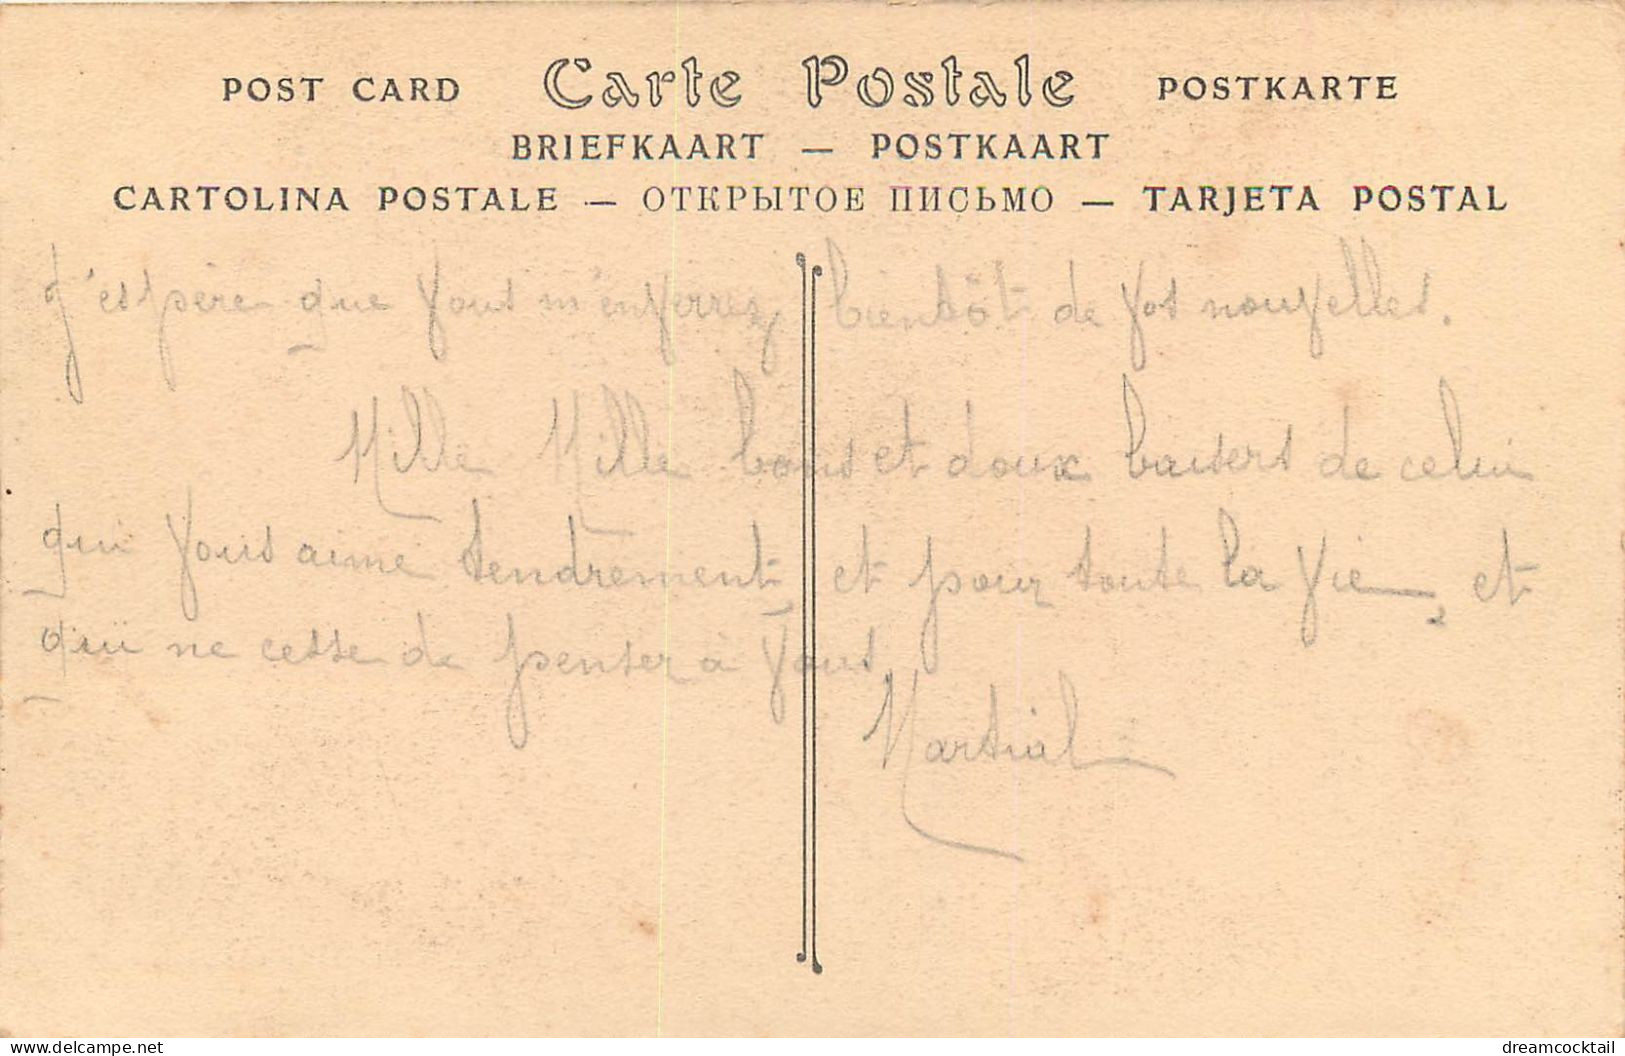 POST CARD Carte Postale POSTKARTE
BRIEFKAART — POSTKAART
CARTOLINA POSTALE — ОТКРЫТОЕ ПИСЬМО — TARJETA POSTAL
J'espère que vous m'enverrez bientôt de vos nouvelles.
Mille Mille bons et doux baisers de celui
qui vous aime tendrement, et pour toute la vie, et
qui ne cesse de penser à vous
Martial
delcampe.net
dreamcocktail